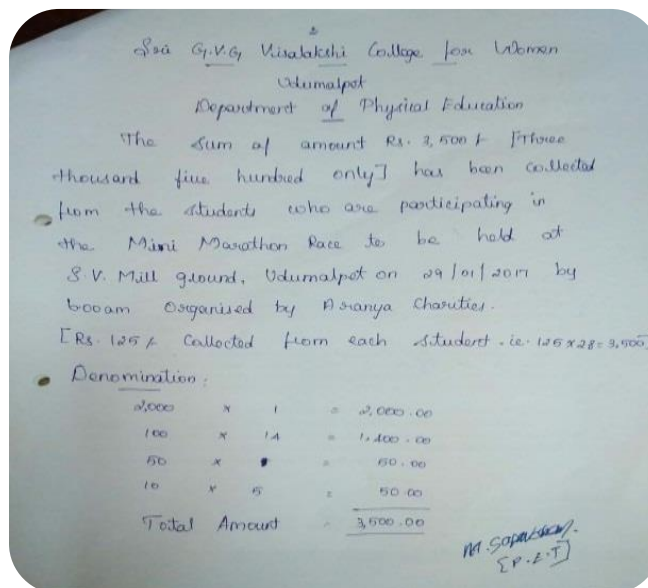 Sri G.V.G Visalakshi College for Women
Udumalpet
Department of Physical Education
The Sum of amount Rs. 3,500/- [Three
thousand five hundred only] has been collected
from the students who are participating in
the Mini Marathon Race to be held at
S.V. Mill ground, Udumalpet on 29/01/2017 by
6.00am Organised by Aranya Charities.
[Rs. 125/- Collected from each student. ie. 125 x 28 = 3,500]
Denomination:
2,000 x 1 = 2,000.00
100 x 14 = 1,400.00
50 x = 50.00
10 x 5 = 50.00
Total Amount = 3,500.00
[P.E.T]